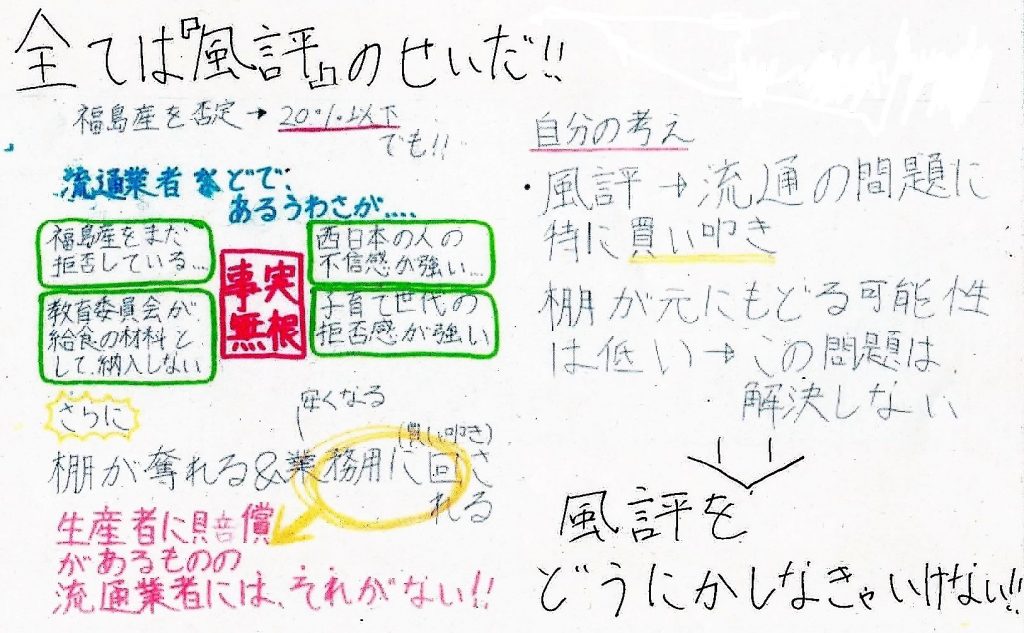 全ては『風評』のせいだ!!
福島産を否定→20%以下
でも!!
流通業者などで、
あるうわさが....
福島産をまだ
拒否している...
西日本の人の
不信感が強い...
事実
無根
教育委員会が
給食の材料と
して納入しない
子育て世代の
拒否感が強い
さらに
安くなる
(買い叩き)
棚が奪れる&業務用に回さ
れる
生産者に賠償
があるものの
流通業者には、それがない!!
自分の考え
・風評→流通の問題に
特に買い叩き
棚が元にもどる可能性
は低い→この問題は
解決しない
風評を
どうにかしなきゃいけない!!